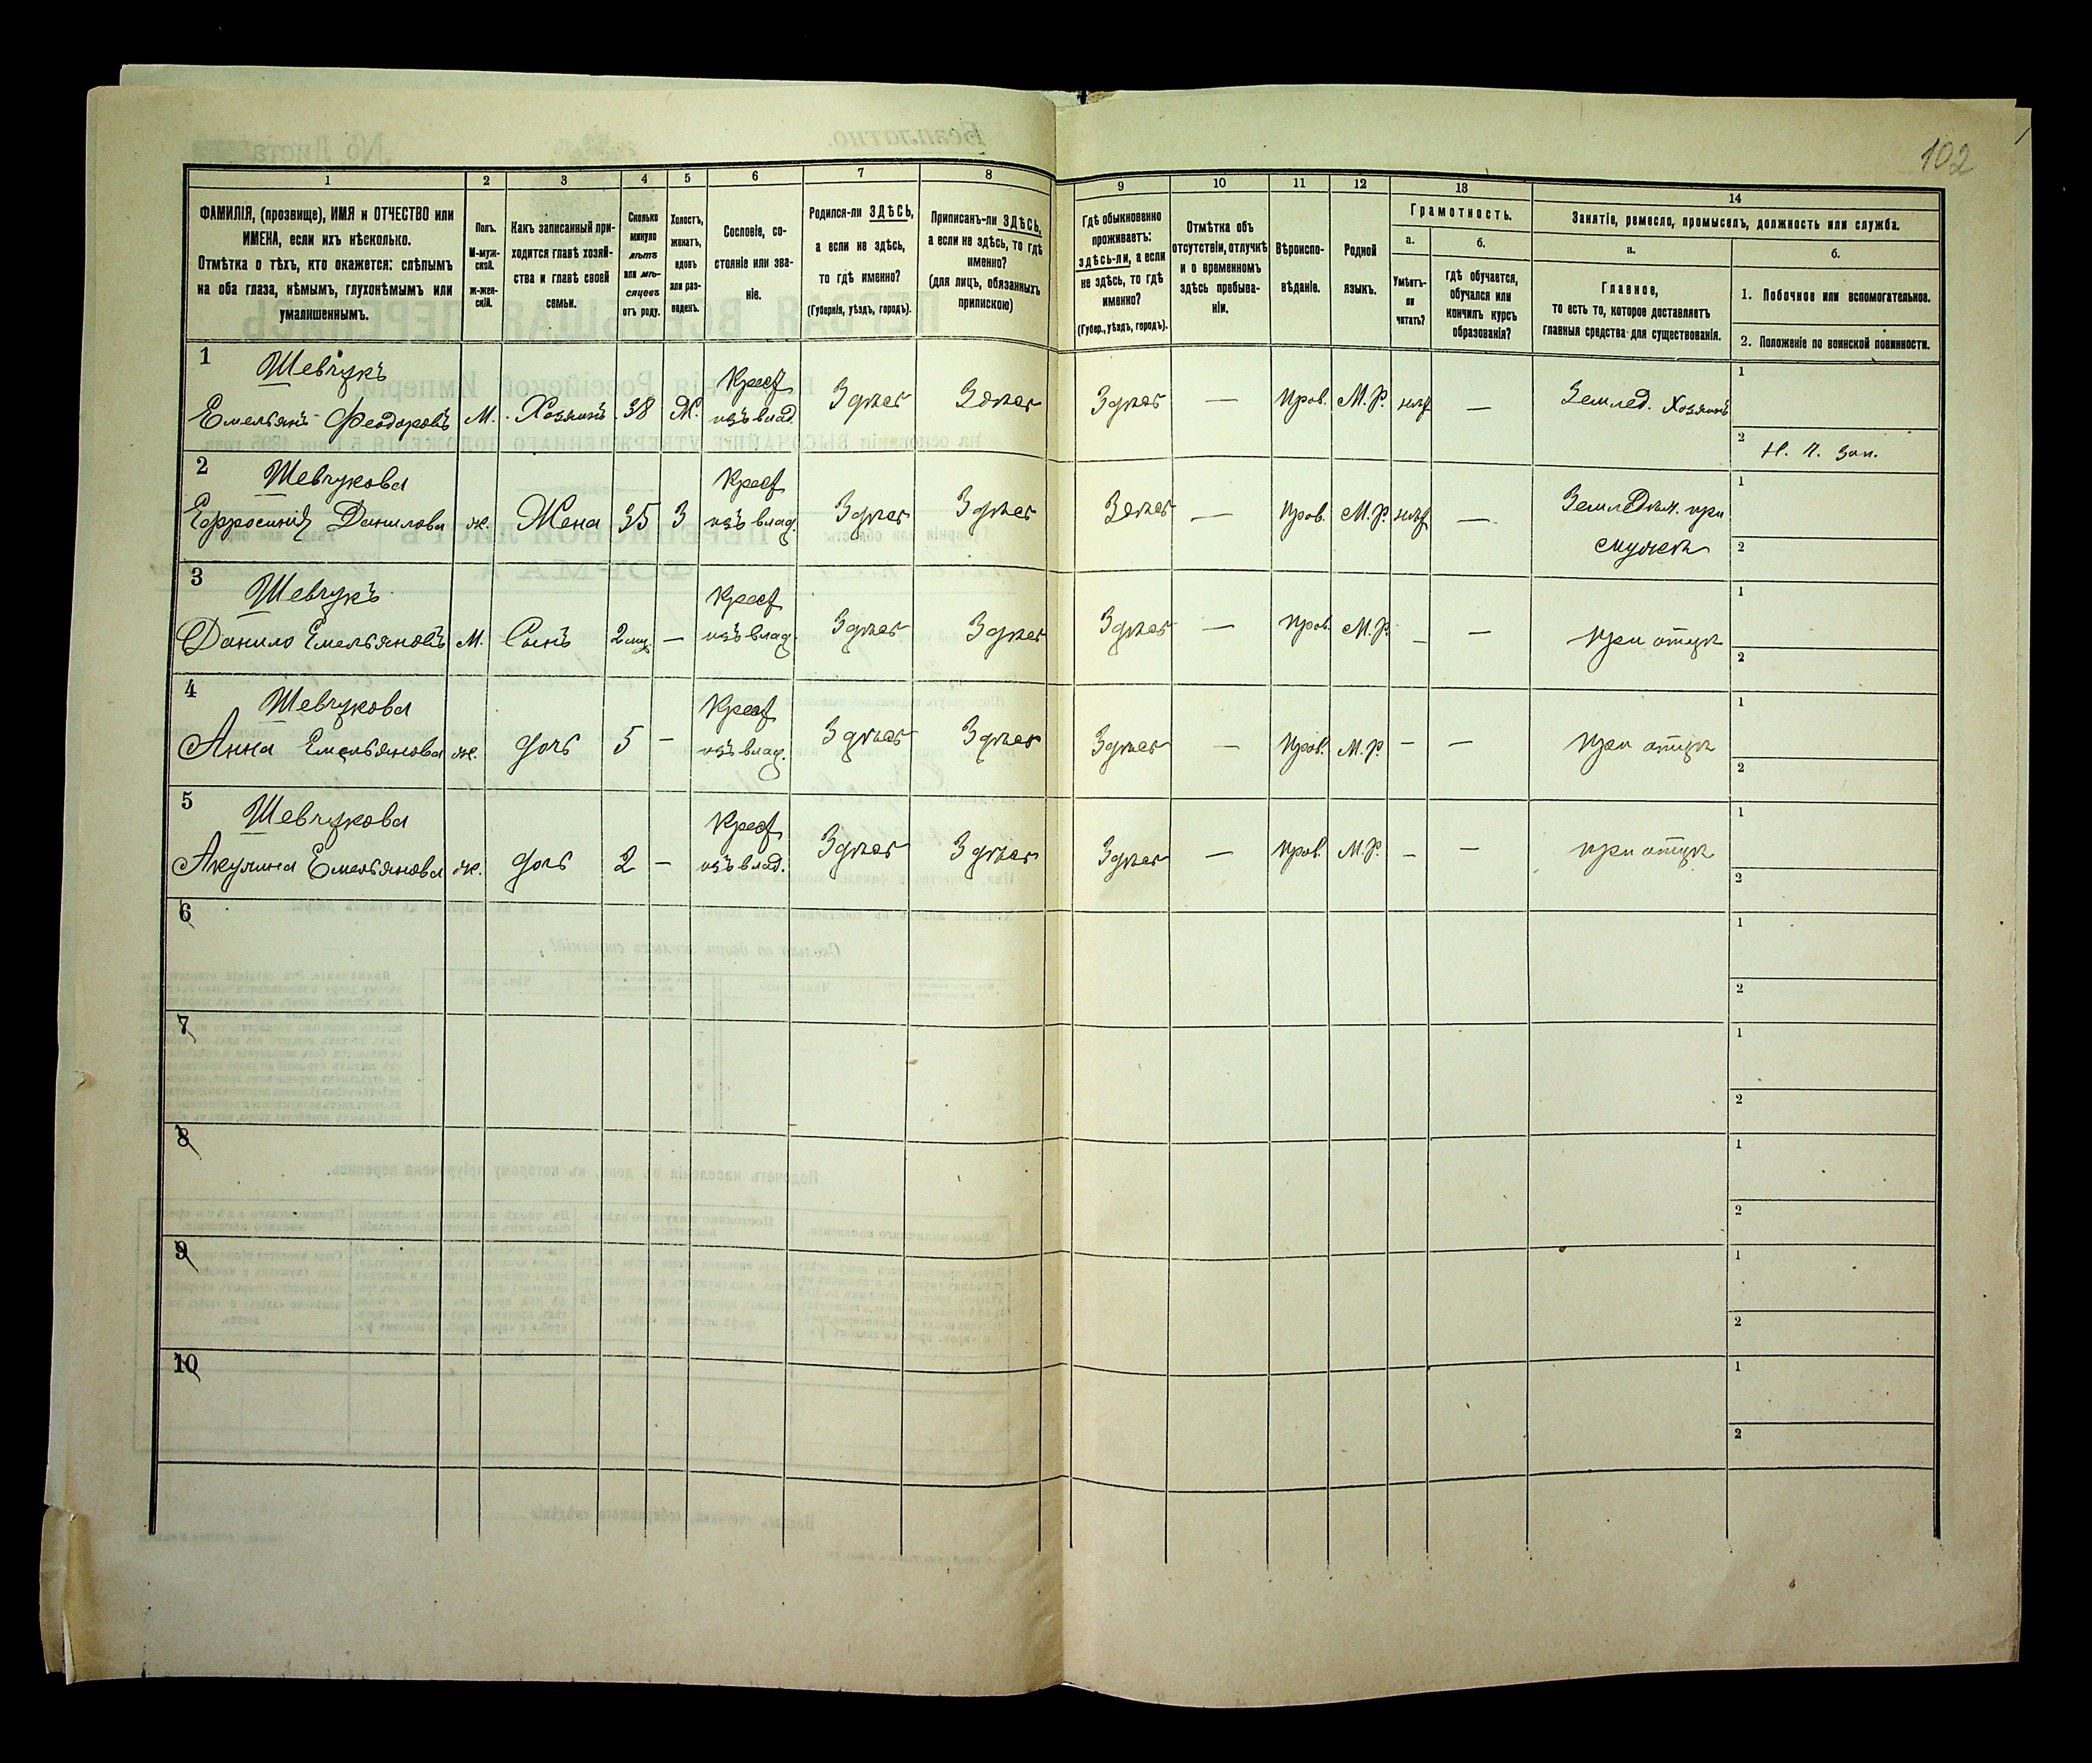 102
1 2 3 4 5 6 7 8 9 10 11 12 13 14
ФАМИЛІЯ, (прозвище), ИМЯ и ОТЧЕСТВО или
ИМЕНА, если ихъ нѣсколько.
Отмѣтка о тѣхъ, кто окажется: слѣпымъ
на оба глаза, нѣмымъ, глухонѣмымъ или
умалишеннымъ.
Полъ.
М-муж-
ской.
ж-жен-
скій.
Какъ записанный при-
ходится главѣ хозяй-
ства и главѣ своей
семьи.
Сколько
минуло
лѣтъ
или мѣ-
сяцевъ
отъ роду.
Холостъ,
женатъ,
вдовъ
или раз-
веденъ.
Сословіе, со-
стояніе или зва-
ніе.
Родился-ли ЗДѢСЬ,
а если не здѣсь,
то гдѣ именно?
(Губернія, уѣздъ, городъ).
Приписанъ-ли ЗДѢСЬ,
а если не здѣсь, то гдѣ
именно?
(для лицъ, обязанныхъ
припискою)
Гдѣ обыкновенно
проживаетъ:
здѣсь-ли, а если
не здѣсь, то гдѣ
именно?
(Губер., уѣздъ, городъ).
Отмѣтка объ
отсутствіи, отлучкѣ
и о временномъ
здѣсь пребыва-
ніи.
Вѣроиспо-
вѣданіе.
Родной
языкъ.
Грамотность.
а.
Умѣетъ-
ли
читать?
б.
гдѣ обучается,
обучался или
кончилъ курсъ
образованія?
Занятіе, ремесло, промыселъ, должность или служба.
а.
Главное,
то есть то, которое доставляетъ
главныя средства для существованія.
б.
1. Побочное или вспомогательное.
2. Положеніе по воинской повинности.
1 Шевчукъ Крест 1
Емельянъ Феодоровъ М. Хозяинъ 38 Ж. изъ влад. Здѣсь Здѣсь Здѣсь — Прав. М. Р. нѣт — Землед. Хозяинъ
2 Н. П. Зап.
2 Шевчукова Крест 1
Ефросинія Данилова ж. Жена 35 З изъ влад. Здѣсь Здѣсь Здѣсь — Прав. М. Р. нѣт — Земледѣл. при
мужѣ 2
3 Шевчукъ Крест 1
Данило Емельяновъ М. Сынъ 2 мц. — изъ влад. Здѣсь Здѣсь Здѣсь — Прав М. Р. — — при отцѣ
2
4 Шевчукова Крест 1
Анна Емельянова ж. дочь 5 — изъ влад. Здѣсь Здѣсь Здѣсь — Прав. М. Р. — — при отцѣ
2
5 Шевчукова Крест 1
Акулина Емельянова ж. дочь 2 — изъ влад. Здѣсь Здѣсь Здѣсь — Прав. М. Р. — — при отцѣ
2
6 1
2
7 1
2
8 1
2
9 1
2
10 1
2